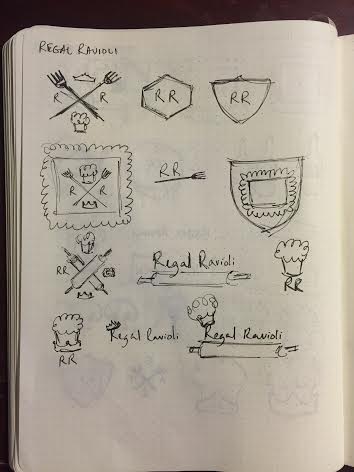 REGAL RAVIOLI
R R
RR
RR
R R
RR
RR
Regal Ravioli
RR
RR
Regal Ravioli
Regal Ravioli